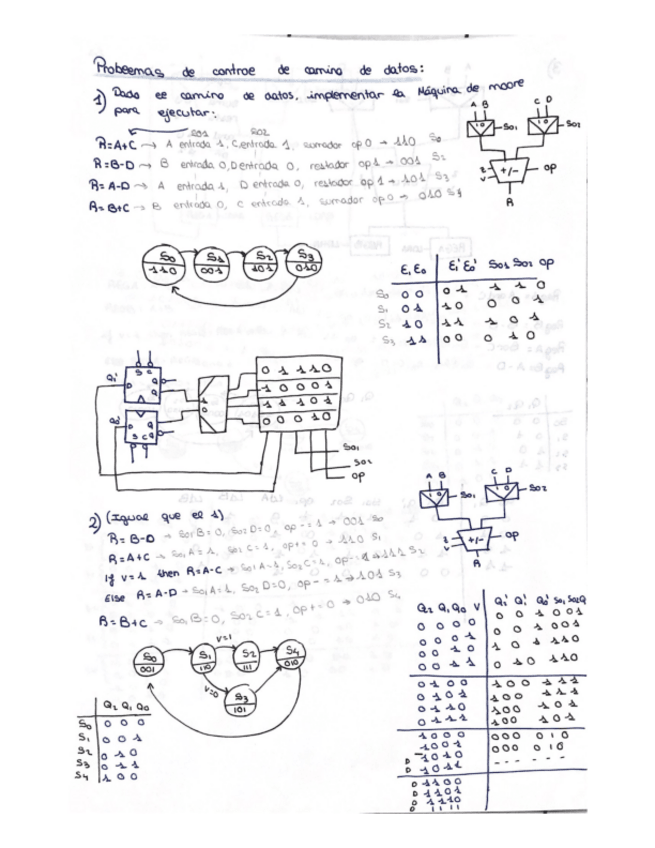 Problemas de control de camino de datos:
1) Dado el camino de datos, implementar la Máquina de moore
para ejecutar:
S01 S02
R=A+C → A entrada 1, C entrada 1, sumador op 0 → 110 S0
R=B-D → B entrada 0, D entrada 0, restador op 1 → 001 S2
R=A-D → A entrada 1, D entrada 0, restador op 1 → 101 S3
R=B+C → B entrada 0, C entrada 1, sumador op 0 → 010 S4
A B C D
1 0 S01 1 0 S02
Z V +/- OP
R
S0 S1 S2 S3
110 001 101 010
E1 E0 E1' E0' S01 S02 OP
S0 0 0 0 1 1 1 0
S1 0 1 1 0 0 0 1
S2 1 0 1 1 1 0 1
S3 1 1 0 0 0 1 0
Q1' D S C Q
Q0' D S C Q
1 0
0 1 1 1 0
1 0 0 0 1
1 1 1 0 1
0 0 0 1 0
S01
S02
OP
2) (Igual que el 1)
R=B-D → S01 B=0, S02 D=0, op-=1 → 001 S0
R=A+C → S01 A=1, S01 C=1, op+=0 → 110 S1
If V=1 then R=A-C → S01 A=1, S02 C=1, op-=1 → 111 S2
Else R=A-D → S01 A=1, S02 D=0, op-=1 → 101 S3
R=B+C → S01 B=0, S02 C=1, op+=0 → 010 S4
A B C D
1 0 S01 1 0 S02
+/- OP
R
S0 S1 V=1 S2 S4
001 110 111 010
V=0 S3
101
Q2 Q1 Q0
S0 0 0 0
S1 0 0 1
S2 0 1 0
S3 0 1 1
S4 1 0 0
Q2 Q1 Q0 V Q1' Q1' Q0' S01 S02 OP
0 0 0 0 0 0 1 0 0 1
0 0 0 1 0 0 1 0 0 1
0 0 1 0 0 1 1 1 1 0
0 0 1 1 0 1 0 1 1 0
0 1 0 0 1 0 0 1 1 1
0 1 0 1 1 0 0 1 1 1
0 1 1 0 1 0 0 1 0 1
0 1 1 1 1 0 0 1 0 1
1 0 0 0 0 0 0 0 1 0
1 0 0 1 0 0 0 0 1 0
D 1 0 1 0 - - - - - -
D 1 0 1 1
D 1 1 0 0
D 1 1 0 1
D 1 1 1 0
D 1 1 1 1